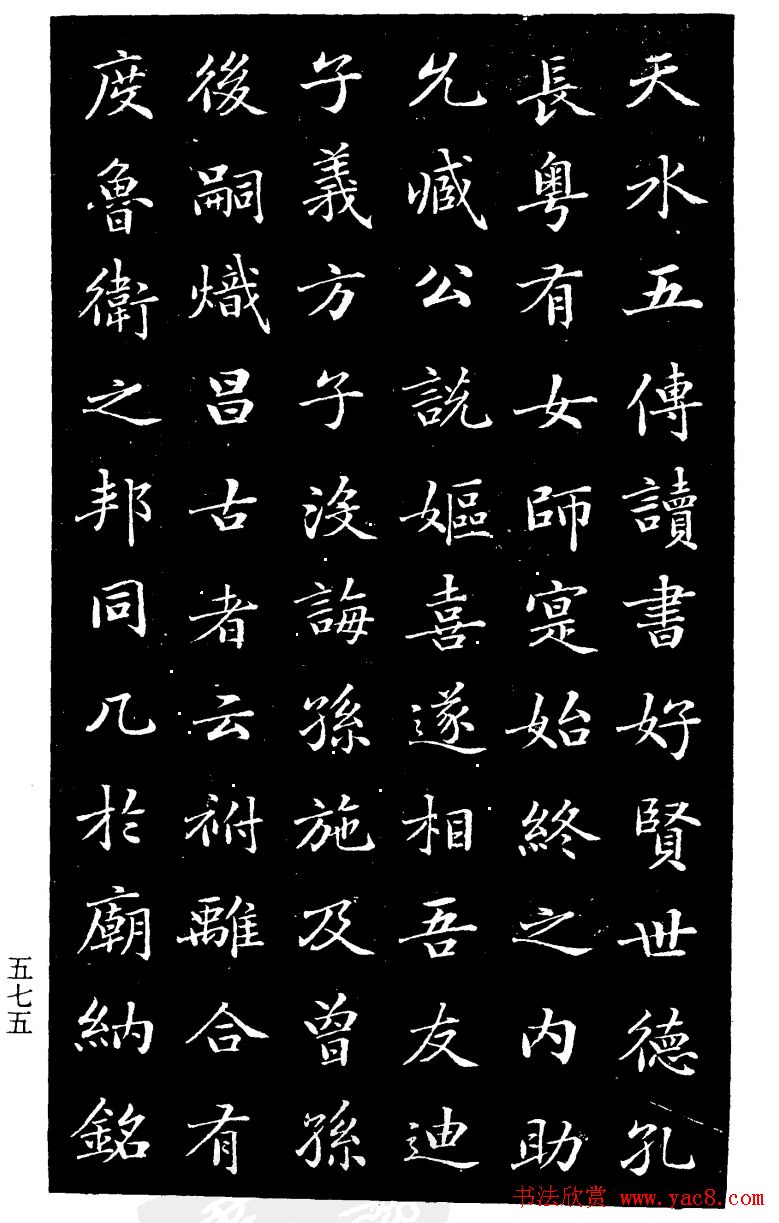 天水五傳讀書好賢世德孔
長粤有女師寔始終之内助
允臧公說嫗喜遂相吾友迪
子義方子没誨孫施及曾孫
後嗣熾昌古者云祔離合有
度魯衛之邦同几於廟納銘
五七五
书法欣赏 www.yac8.com